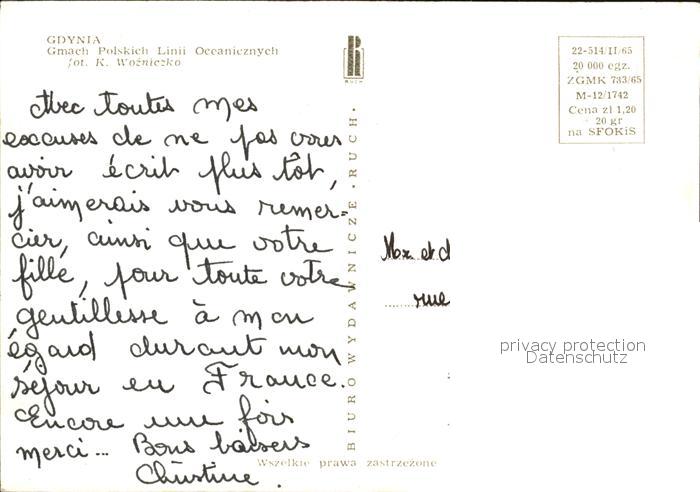 GDYNIA
Gmach Polskich Linii Oceanicznych
fot. K. Woźniczko
RUCH
22-514/II/65
20 000 egz.
ZGMK 733/65
M-12/1742
Cena zł 1,20
20 gr
na SFOKiS
Avec toutes mes
excuses de ne pas vous
avoir écrit plus tôt,
j'aimerais vous remer-
cier, ainsi que votre
fille, pour toute votre
gentillesse à mon
égard durant mon
séjour en France.
Encore une fois
merci... Bons baisers
Christine.
BIURO WYDAWNICZE • RUCH •
Mr. et
rue
privacy protection
Datenschutz
Wszelkie prawa zastrzeżone